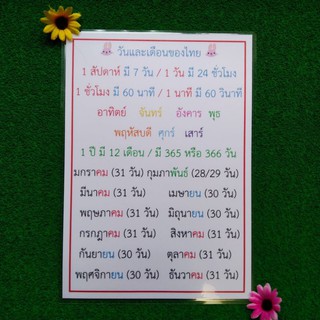 วันและเดือนของไทย
1 สัปดาห์ มี 7 วัน / 1 วัน มี 24 ชั่วโมง
1 ชั่วโมง มี 60 นาที / 1 นาที มี 60 วินาที
อาทิตย์ จันทร์ อังคาร พุธ
พฤหัสบดี ศุกร์ เสาร์
1 ปี มี 12 เดือน / มี 365 หรือ 366 วัน
มกราคม (31 วัน) กุมภาพันธ์ (28/29 วัน)
มีนาคม (31 วัน) เมษายน (30 วัน)
พฤษภาคม (31 วัน) มิถุนายน (30 วัน)
กรกฎาคม (31 วัน) สิงหาคม (31 วัน)
กันยายน (30 วัน) ตุลาคม (31 วัน)
พฤศจิกายน (30 วัน) ธันวาคม (31 วัน)